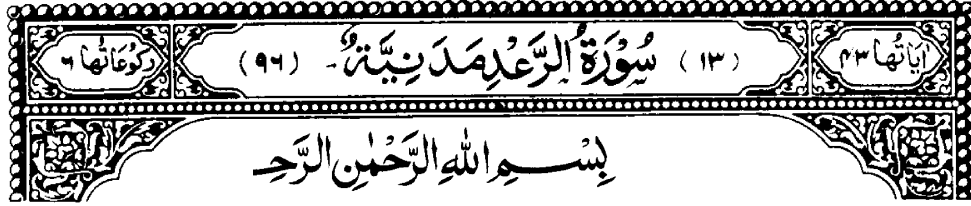 اٰيَاتُهَا ۴۳ (۱۳) سُوْرَةُ الرَّعْدِ مَدَنِيَّةٌ (۹۶) رُكُوْعَاتُهَا ۶
بِسْمِ اللهِ الرَّحْمٰنِ الرَّحِـ